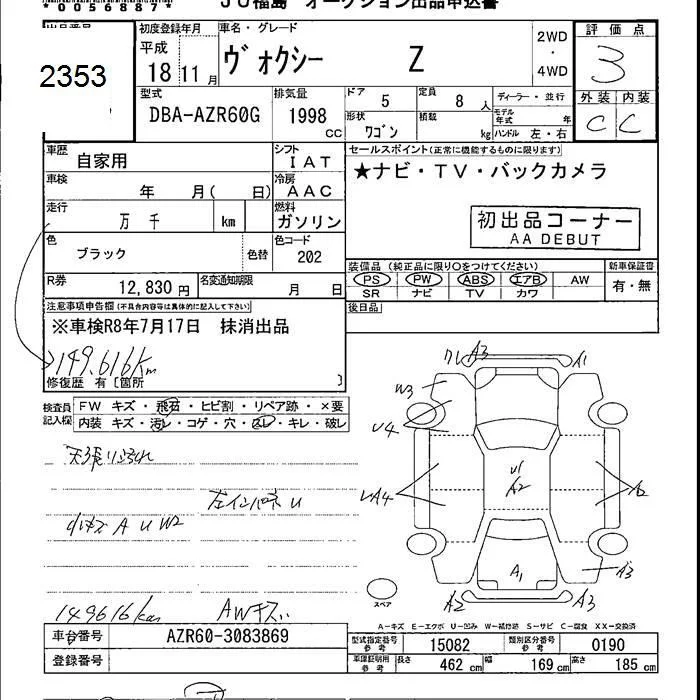 *0056887*
JU福島 オークション出品申込書
出品番号
2353
初度登録年月
平成
18 11月
車名・グレード
ヴォクシー Z
2WD
・
4WD
評価点
3
外装 内装
C C
型式
DBA-AZR60G
排気量
1998
CC
ドア
5
定員
8 人
形状
ワゴン
積載
kg
ディーラー・並行
モデル年式 年
ハンドル 左・右
車歴
自家用
シフト
IAT
車検
年 月( 日)
冷房
AAC
走行
万 千 km
燃料
ガソリン
色
ブラック
色替
色コード
202
R券
12,830 円
名変通知期限
月 日
セールスポイント(正常に機能するものに限ります)
★ナビ・TV・バックカメラ
初出品コーナー
AA DEBUT
装備品(純正品に限り○をつけてください)
PS PW ABS エアB AW
SR ナビ TV カワ
新車保証書
有・無
後日品
注意事項申告欄(不具合内容等は具体的に記入して下さい)
※車検R8年7月17日 抹消出品
149,616km
修復歴 有〔箇所 〕
検査員記入欄
FW キズ・飛石・ヒビ割・リペア跡・×要
内装 キズ・汚レ・コゲ・穴・スレ・キレ・破レ
左インパネ U
小キズ A U W2
149616km
AWキズ
A3
A1
W3
U4
UA4
U1
A2
A2
A1
A3
A2
A3
スペア
A－キズ E－エクボ U－凹み W－補修跡 S－サビ C－腐食 XX－交換済
車台番号
AZR60-3083869
登録番号
型式指定番号
参考
15082
類別区分番号
参考
0190
車庫証明用
参考
長さ
462 cm
幅
169 cm
高さ
185 cm